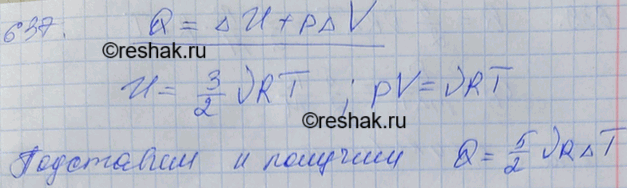 637. Q = ΔU + pΔV
©reshak.ru
U = 3/2 νRT ; pV = νRT
©reshak.ru
Подставим и получим Q = 5/2 νRΔT